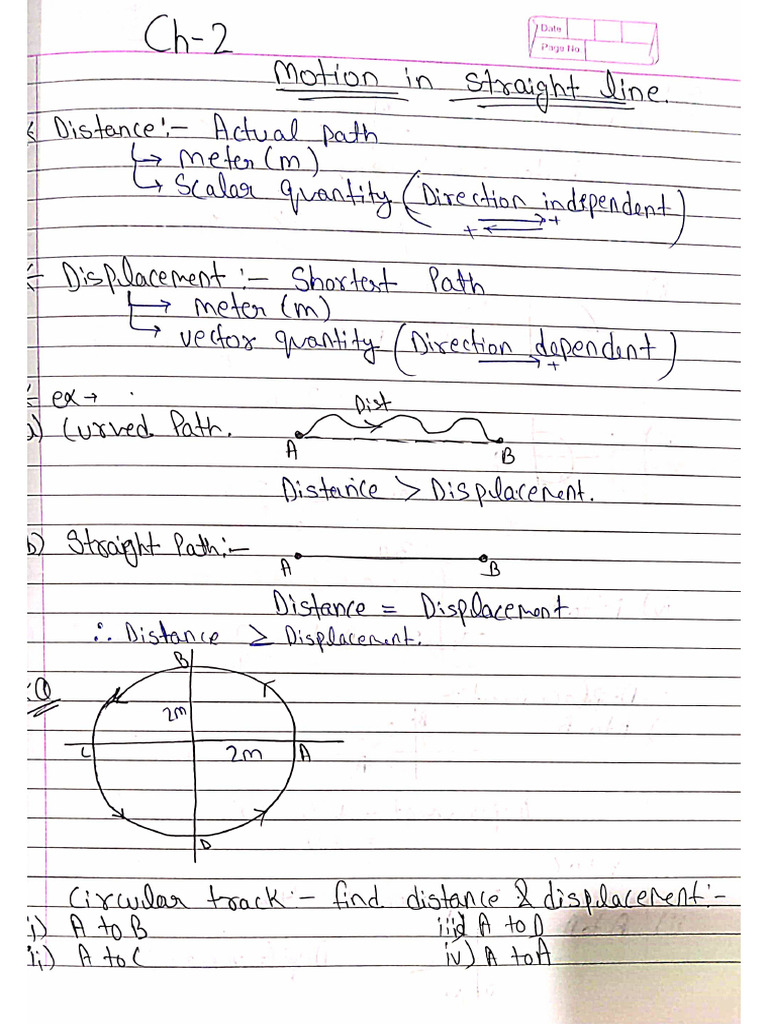 Ch-2
Date
Page No
Motion in straight line.
Distance:- Actual path
↳ meter (m)
↳ Scalar quantity (Direction independent)
+ ⇄ +
Displacement:- Shortest Path
→ meter (m)
↳ vector quantity (Direction dependent)
→ +
ex →
a) Curved Path.
Dist
A B
Distance > Displacement.
b) Straight Path:-
A B
Distance = Displacement
∴ Distance ≥ Displacement.
Q
B
2m
C 2m A
D
Circular track:- find distance & displacement:-
i) A to B iii) A to D
ii) A to C iv) A to A